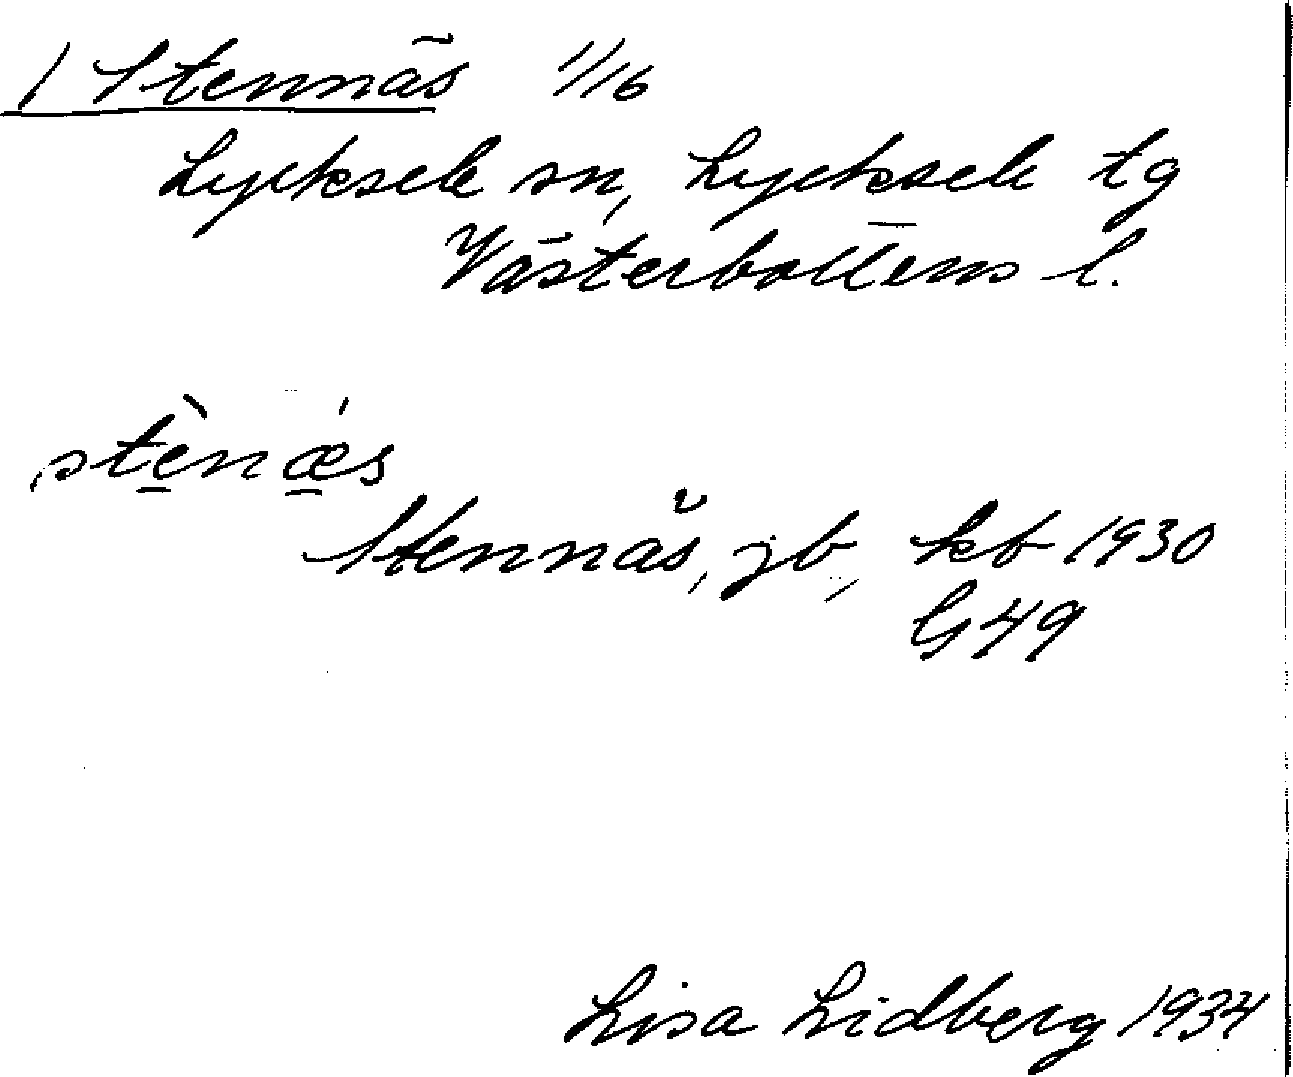 1 Stennäs 1/16
Lycksele sn, Lycksele tg
Västerbottens l.
stènǽ̱s
Stennäs, gb, kb 1930
G 49
Lisa Lidberg 1934